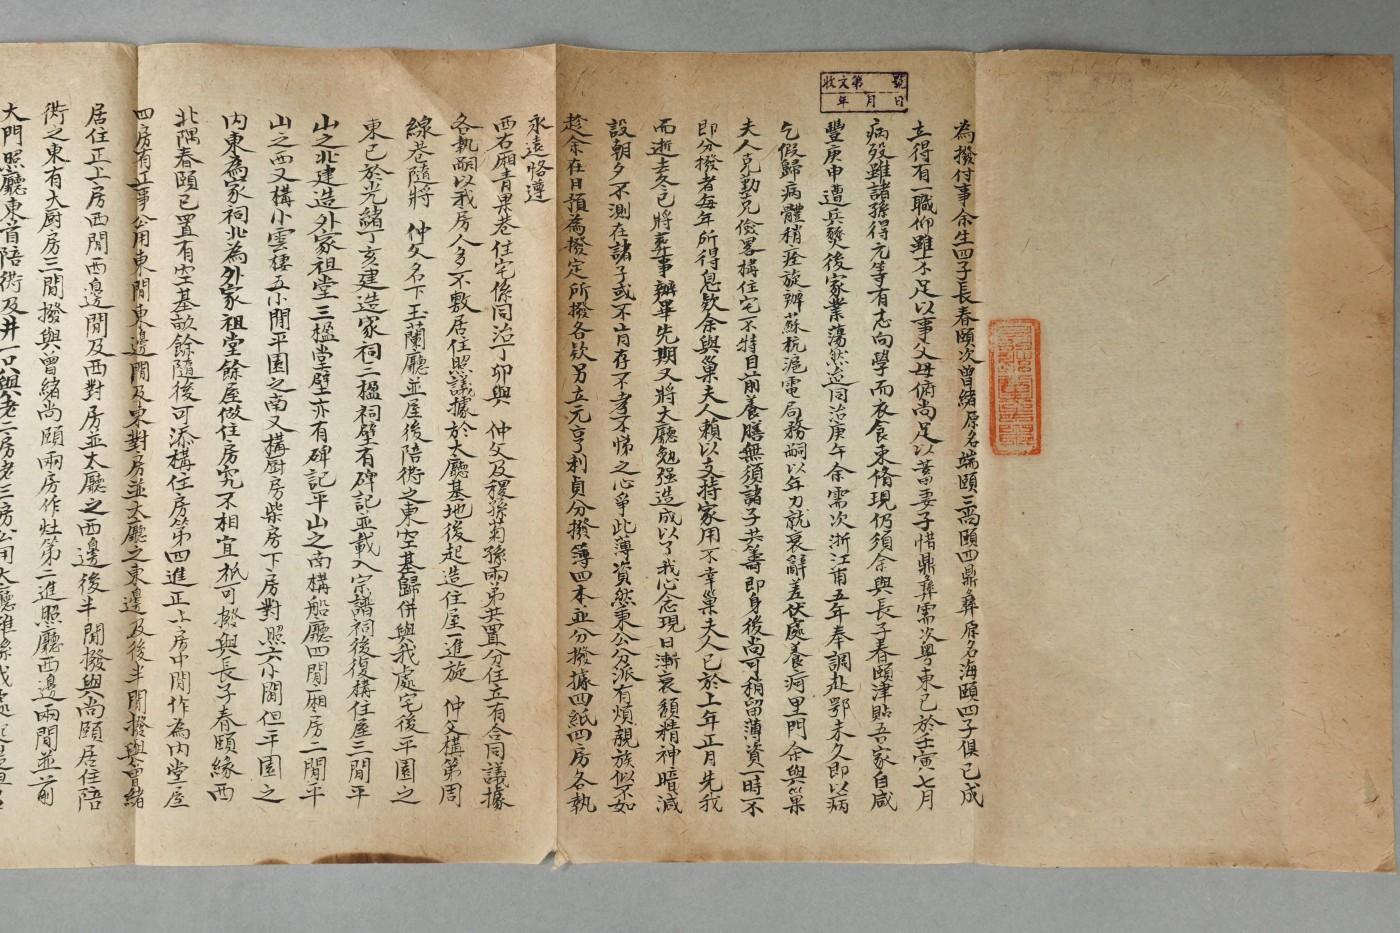 為撥付事余生四子長春頤次曾緒原名端頤三尚頤四鼎彝原名海頤四子俱已成
立得有一職仰雖不足以事父母俯尚足以蓄妻子惜鼎彝需次粵東已於壬寅七月
病歿雖諸孫得元等有志向學而衣食束脩現仍須余與長子春頤津貼吾家自咸
豐庚申遭兵燹後家業蕩然迨同治庚午余需次浙江甫五年奉調赴鄂未久即以病
乞假歸病體稍痊旋辦蘇杭滬電局務嗣以年力就衰辭差伏處養疴里門余與巢
夫人克勤克儉畧構住宅不特目前養膳無須諸子共籌即身後尚可稍留薄資一時不
即分撥者每年所得息欵余與巢夫人賴以支持家用不幸巢夫人已於上年正月先我
而逝去冬已將葬事辦畢先期又將大廳勉强造成以了我心念現日漸衰頹精神暗減
設朝夕不測在諸子或不肯存不孝不悌之心爭此薄資然秉公分派有煩親族似不如
趁余在日預為撥定所撥各欵另立元亨利貞分撥簿四本並分撥據四紙四房各執
永遠恪遵
西右廂青果巷住宅係同治丁卯與 仲父及稷孫菊孫兩弟共置分住立有合同議據
各執嗣以我房人多不敷居住照議據於大廳基地後起造住屋一進旋 仲父構第周
線巷隨將 仲父名下玉蘭廳並屋後陪衖之東空基歸併與我處宅後平園之
東已於光緒丁亥建造家祠三楹祠壁有碑記並載入宗譜祠後復構住屋三間平
山之北建造外家祖堂三楹堂壁亦有碑記平山之南構船廳四間廂房二間平
山之西又構小雲棲五小間平園之南又構厨房柴房下房對照六小間但平園之
內東為家祠北為外家祖堂餘屋做住房究不相宜衹可撥與長子春頤緣西
北隅春頤已置有空基畝餘隨後可添構住房第四進正上房中間作為內堂屋
四房有正事公用東間東邊間及東對房並大廳之東邊及後半間撥與曾緒
居住正上房西間西邊間及西對房並大廳之西邊後半間撥與尚頤居住陪
衖之東有大厨房三間撥與曾緒尚頤兩房作灶第二進照廳西邊兩間並前
大門照廳東首陪衖及井一口與老二房老三房公用大廳雖係我處
收文第 號
年 月 日